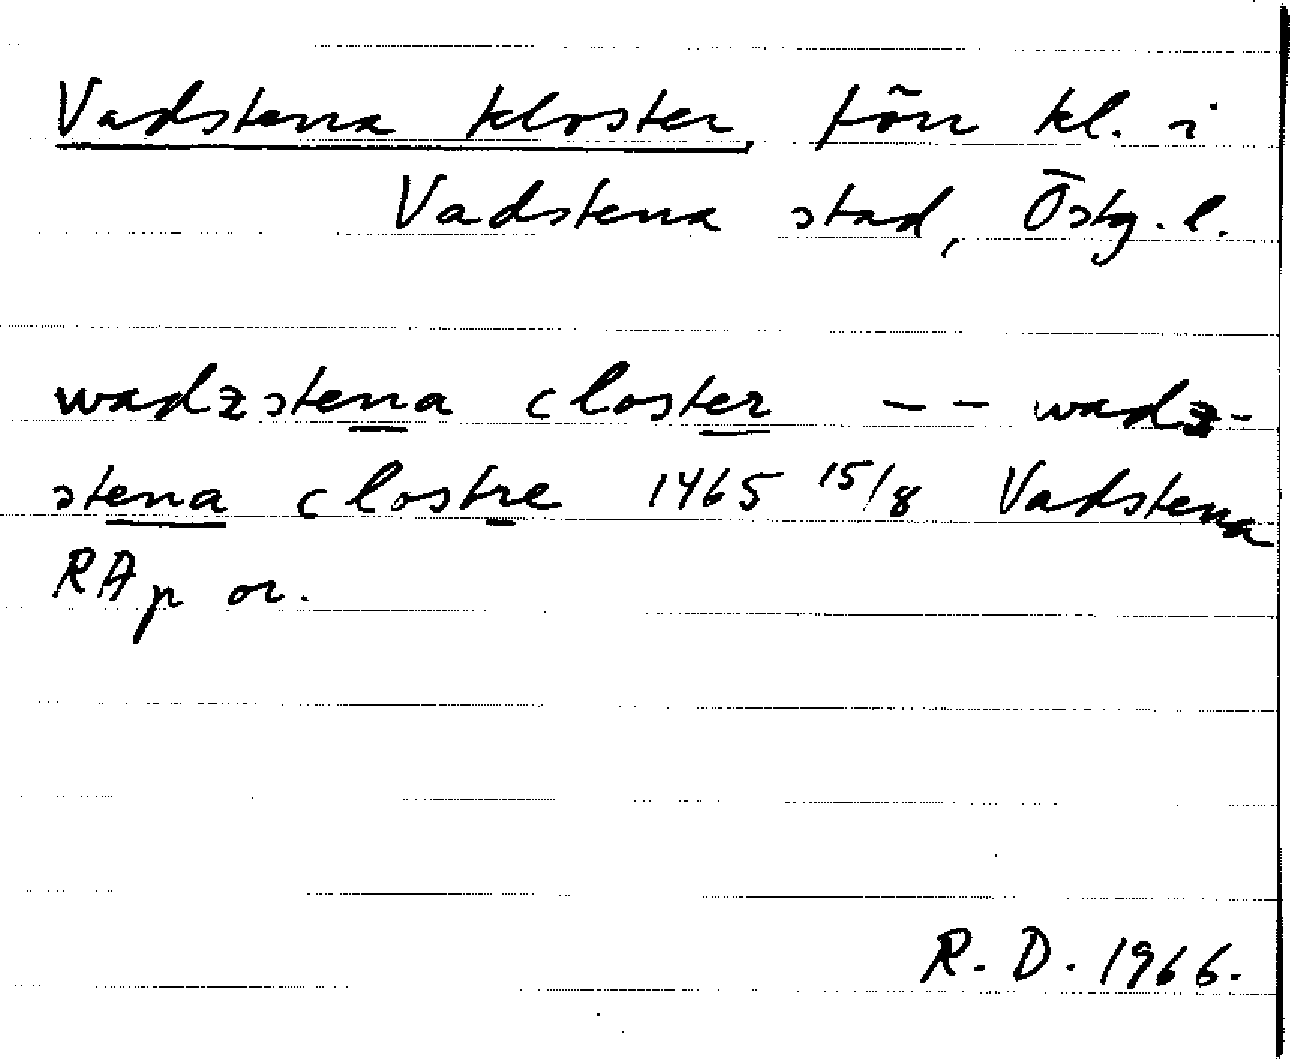 Vadstena kloster, förr kl. i
Vadstena stad, Östg. l.
wadzstena closter -- wadz-
stena clostre 1465 15/8 Vadstena
RAp or.
R. D. 1966.